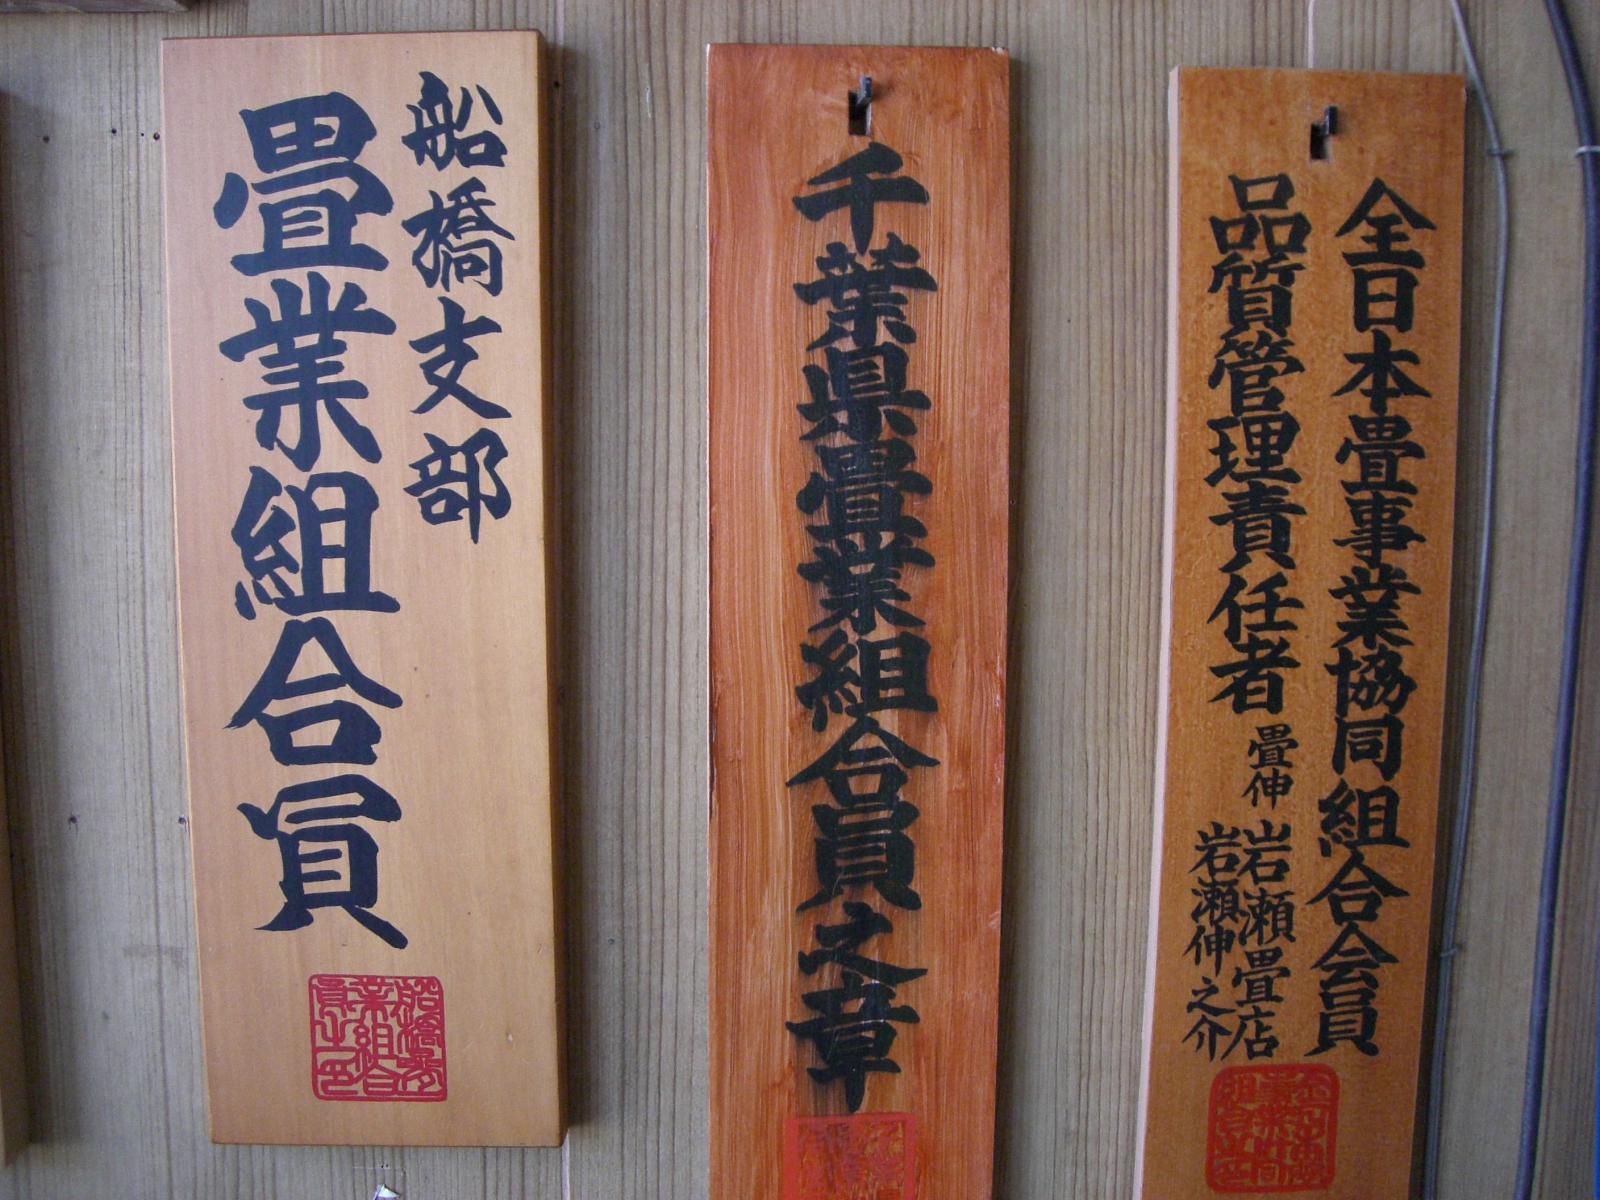 船橋支部
畳業組合員
千葉県畳業組合員之章
全日本畳事業協同組合会員
品質管理責任者
畳伸
岩瀬畳店
岩瀬伸之介